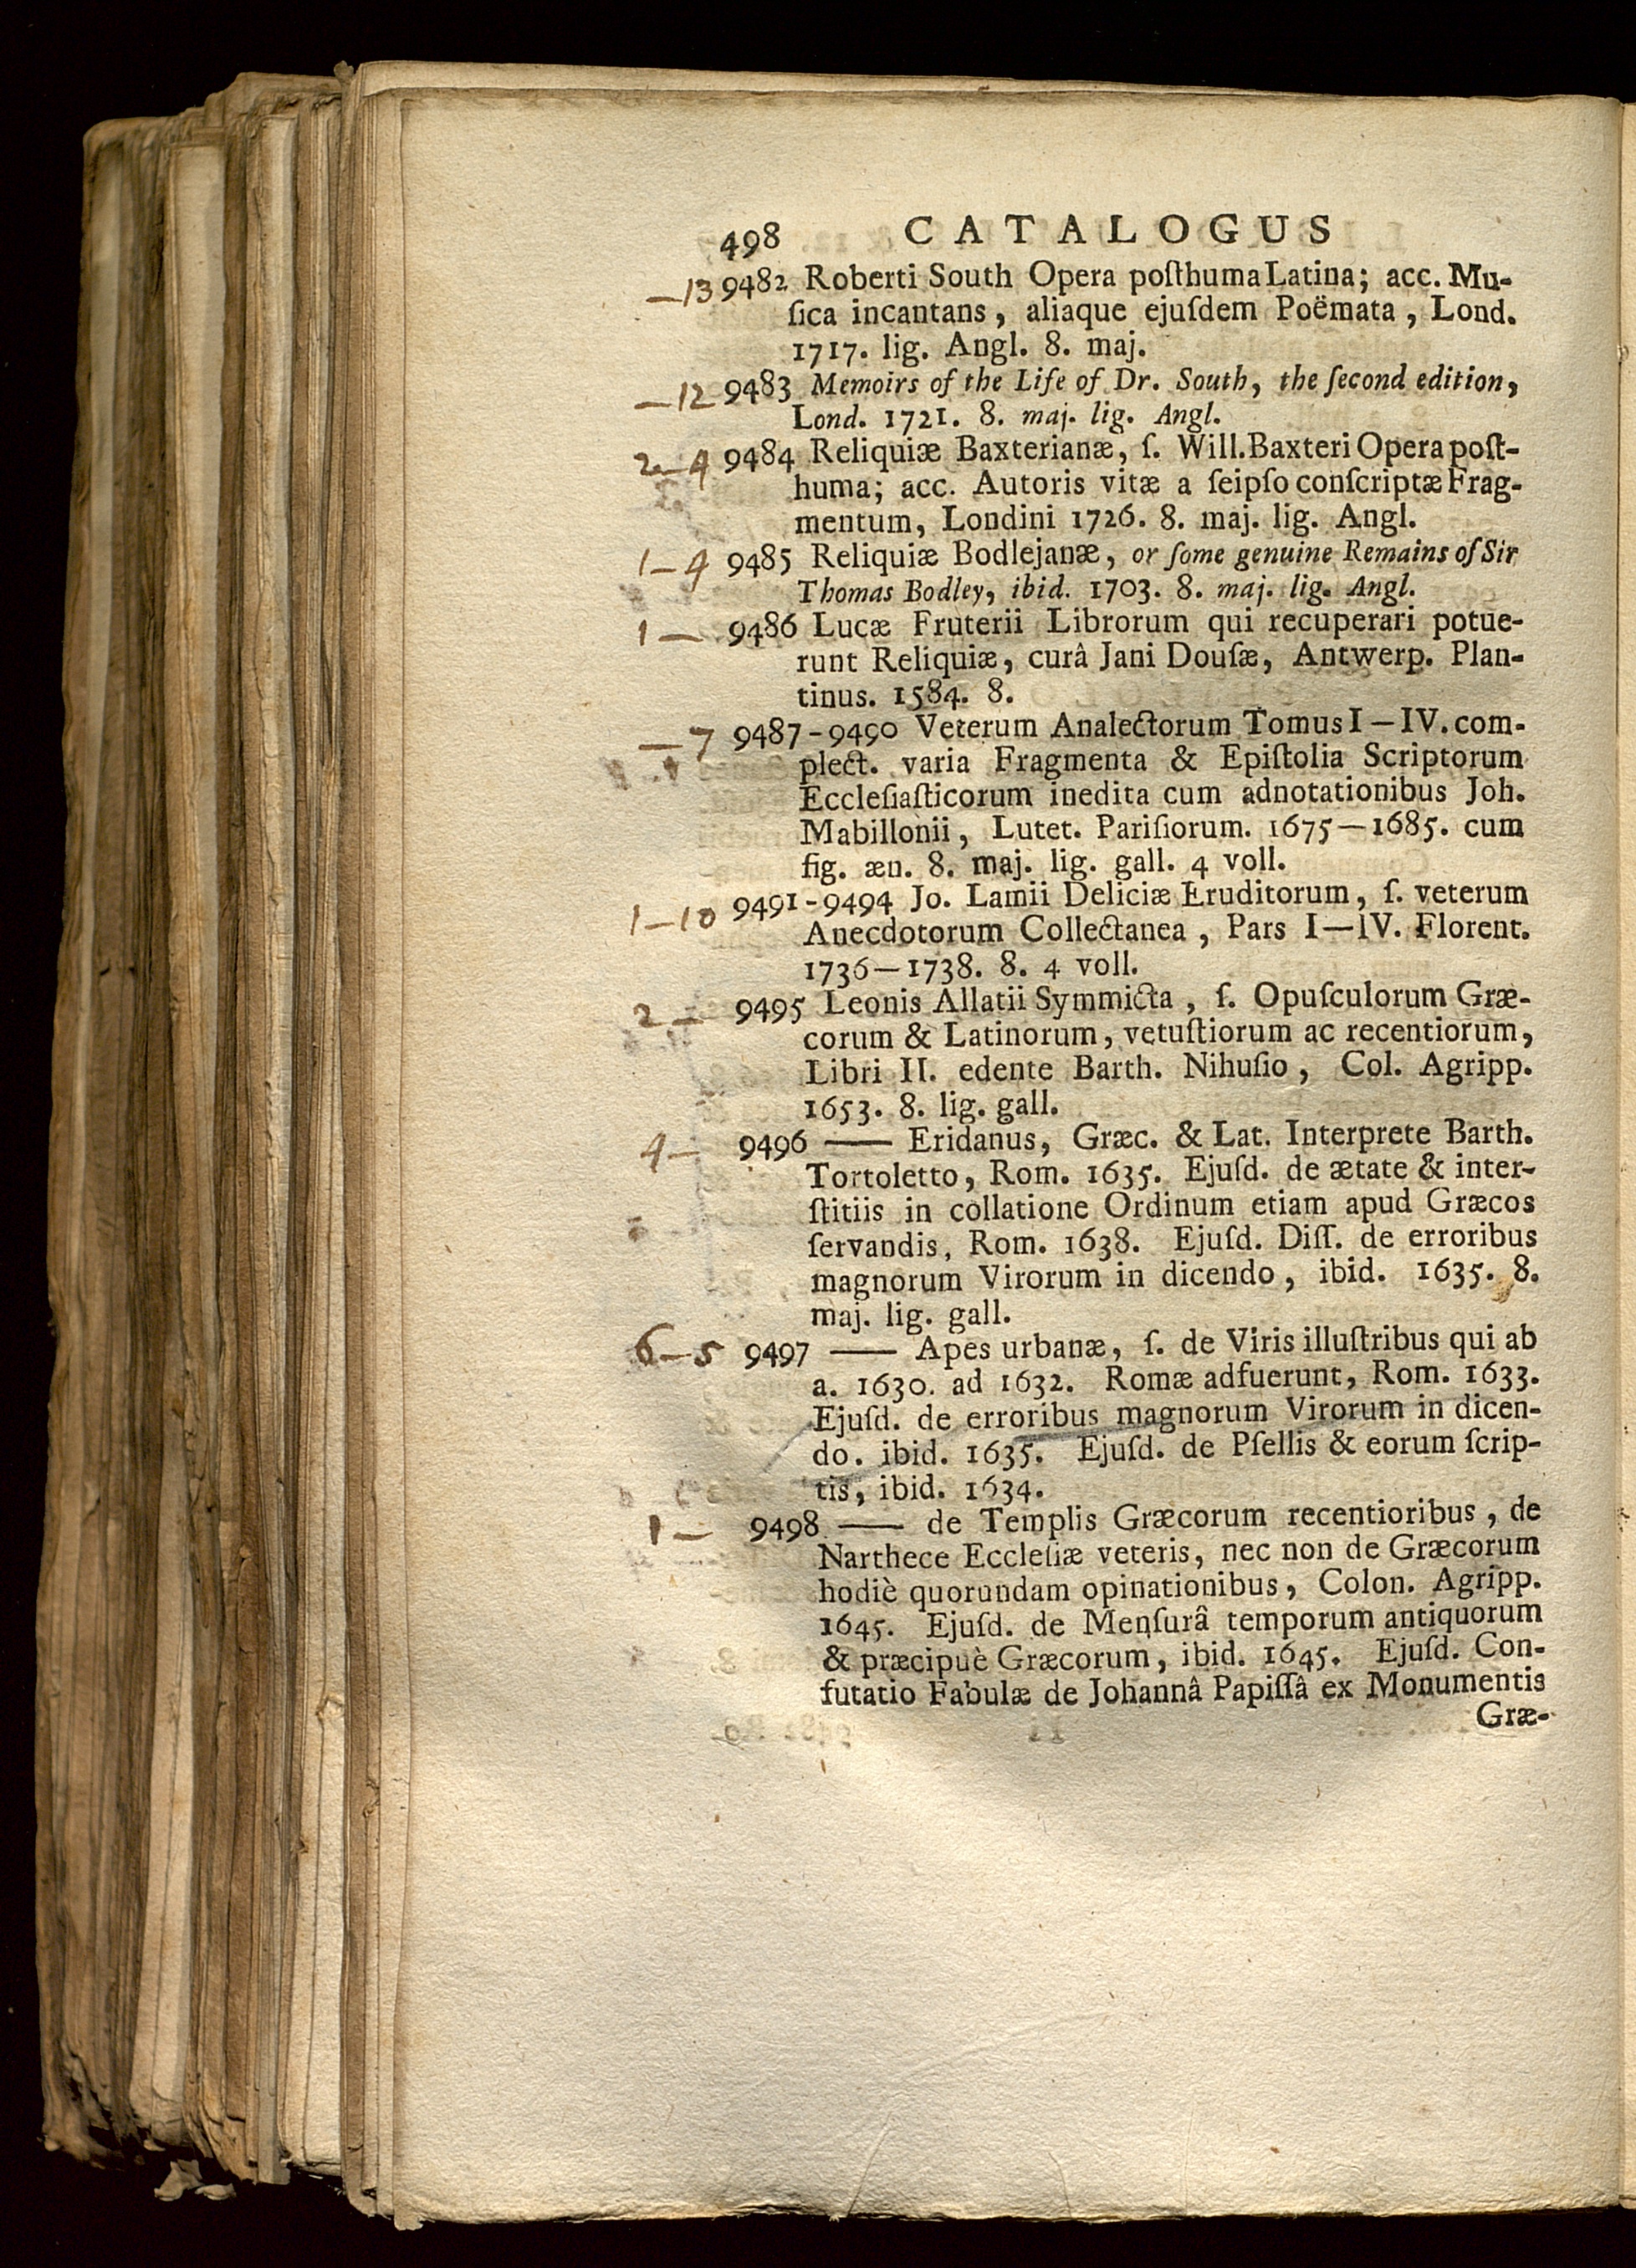 498 CATALOGUS
—13 9482 Roberti South Opera poſthuma Latina; acc. Mu-
ſica incantans, aliaque ejuſdem Poëmata, Lond.
1717. lig. Angl. 8. maj.
—12 9483 Memoirs of the Life of Dr. South, the ſecond edition,
Lond. 1721. 8. maj. lig. Angl.
2—4 9484 Reliquiæ Baxterianæ, ſ. Will. Baxteri Opera poſt-
huma; acc. Autoris vitæ a ſeipſo conſcriptæ Frag-
mentum, Londini 1726. 8. maj. lig. Angl.
1—4 9485 Reliquiæ Bodlejanæ, or ſome genuine Remains of Sir
Thomas Bodley, ibid. 1703. 8. maj. lig. Angl.
1— 9486 Lucæ Fruterii Librorum qui recuperari potue-
runt Reliquiæ, curâ Jani Douſæ, Antwerp. Plan-
tinus. 1584. 8.
—7 9487-9490 Veterum Analectorum Tomus I—IV. com-
plect. varia Fragmenta & Epiſtolia Scriptorum
Eccleſiaſticorum inedita cum adnotationibus Joh.
Mabillonii, Lutet. Pariſiorum. 1675—1685. cum
fig. æn. 8. maj. lig. gall. 4 voll.
1—10 9491-9494 Jo. Lamii Deliciæ Eruditorum, ſ. veterum
Anecdotorum Collectanea, Pars I—IV. Florent.
1736—1738. 8. 4 voll.
2— 9495 Leonis Allatii Symmicta, ſ. Opuſculorum Græ-
corum & Latinorum, vetuſtiorum ac recentiorum,
Libri II. edente Barth. Nihuſio, Col. Agripp.
1653. 8. lig. gall.
4— 9496 —— Eridanus, Græc. & Lat. Interprete Barth.
Tortoletto, Rom. 1635. Ejuſd. de ætate & inter-
ſtitiis in collatione Ordinum etiam apud Græcos
ſervandis, Rom. 1638. Ejuſd. Diſſ. de erroribus
magnorum Virorum in dicendo, ibid. 1635. 8.
maj. lig. gall.
6—5 9497 —— Apes urbanæ, ſ. de Viris illuſtribus qui ab
a. 1630. ad 1632. Romæ adfuerunt, Rom. 1633.
Ejuſd. de erroribus magnorum Virorum in dicen-
do. ibid. 1635. Ejuſd. de Pſellis & eorum ſcrip-
tis, ibid. 1634.
1— 9498 —— de Templis Græcorum recentioribus, de
Narthece Eccleſiæ veteris, nec non de Græcorum
hodiè quorundam opinationibus, Colon. Agripp.
1645. Ejuſd. de Menſurâ temporum antiquorum
& præcipuè Græcorum, ibid. 1645. Ejuſd. Con-
futatio Fabulæ de Johannâ Papiſſâ ex Monumentis
Græ-